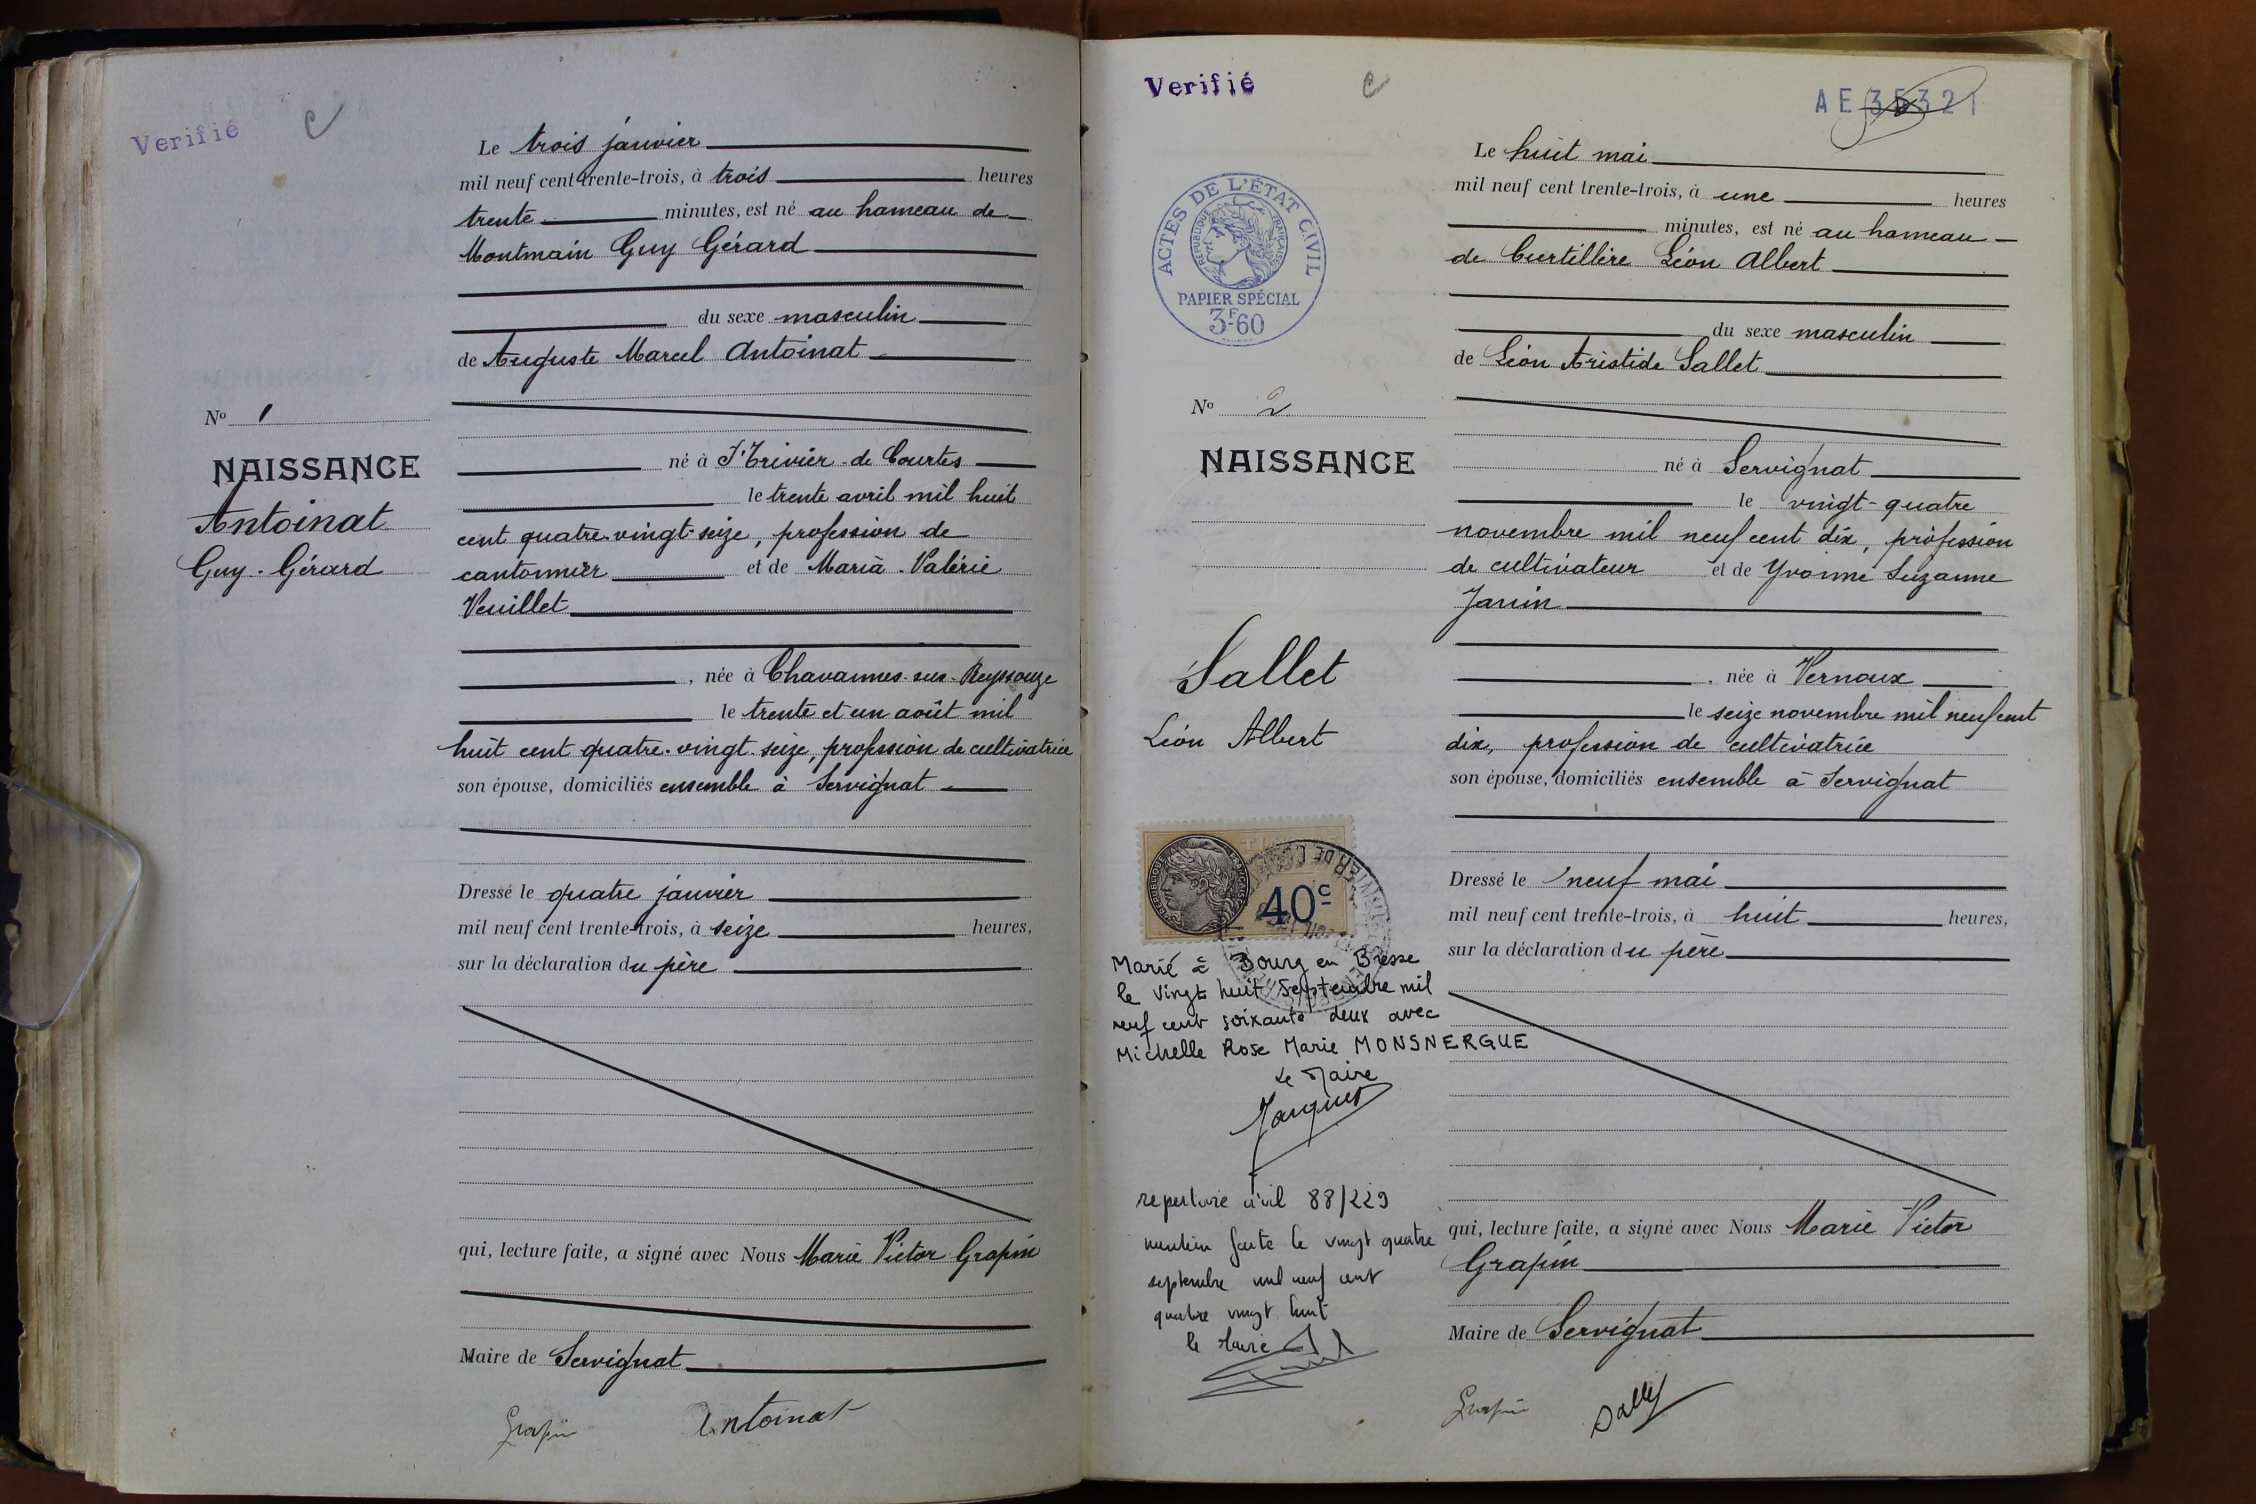 Verifié
C
Le trois janvier
mil neuf cent trente-trois, à trois heures
trente minutes, est né au hameau de
Montmain Guy Gérard
du sexe masculin
de Auguste Marcel Antoinat
Nº 1
NAISSANCE
Antoinat
Guy-Gérard
né à St Trivier-de Courtes
le trente avril mil huit
cent quatre-vingt-seize, profession de
cantonnier et de Maria-Valérie
Veuillet
, née à Chavannes-sur-Reyssouze
le trente et un août mil
huit cent quatre-vingt-seize, profession de cultivatrice
son épouse, domiciliés ensemble à Servignat
Dressé le quatre janvier
mil neuf cent trente-trois, à seize heures,
sur la déclaration du père
qui, lecture faite, a signé avec Nous Marie Victor Grapin
Maire de Servignat
Grapin Antoinat
Verifié
C
AE 35321
ACTES DE L'ÉTAT CIVIL
RÉPUBLIQUE FRANÇAISE
PAPIER SPÉCIAL
3F60
Le huit mai
mil neuf cent trente-trois, à une heures
minutes, est né au hameau
de Curtillère Léon Albert
du sexe masculin
de Léon Aristide Sallet
Nº 2
NAISSANCE
Sallet
Léon Albert
né à Servignat
le vingt-quatre
novembre mil neuf cent dix, profession
de cultivateur et de Yvonne Suzanne
, née à Vernoux
le seize novembre mil neuf cent
dix, profession de cultivatrice
son épouse, domiciliés ensemble à Servignat
Dressé le neuf mai
mil neuf cent trente-trois, à huit heures,
sur la déclaration du père
40c
Marié à Bourg en Bresse
le vingt huit Septembre mil
neuf cent soixante deux avec
Michelle Rose Marie MONSNERGUE
Le Maire
repertoire civil 88/229
mention faite le vingt quatre
septembre mil neuf cent
quatre vingt huit
le Maire
qui, lecture faite, a signé avec Nous Marie Victor
Grapin
Maire de Servignat
Grapin Sallet